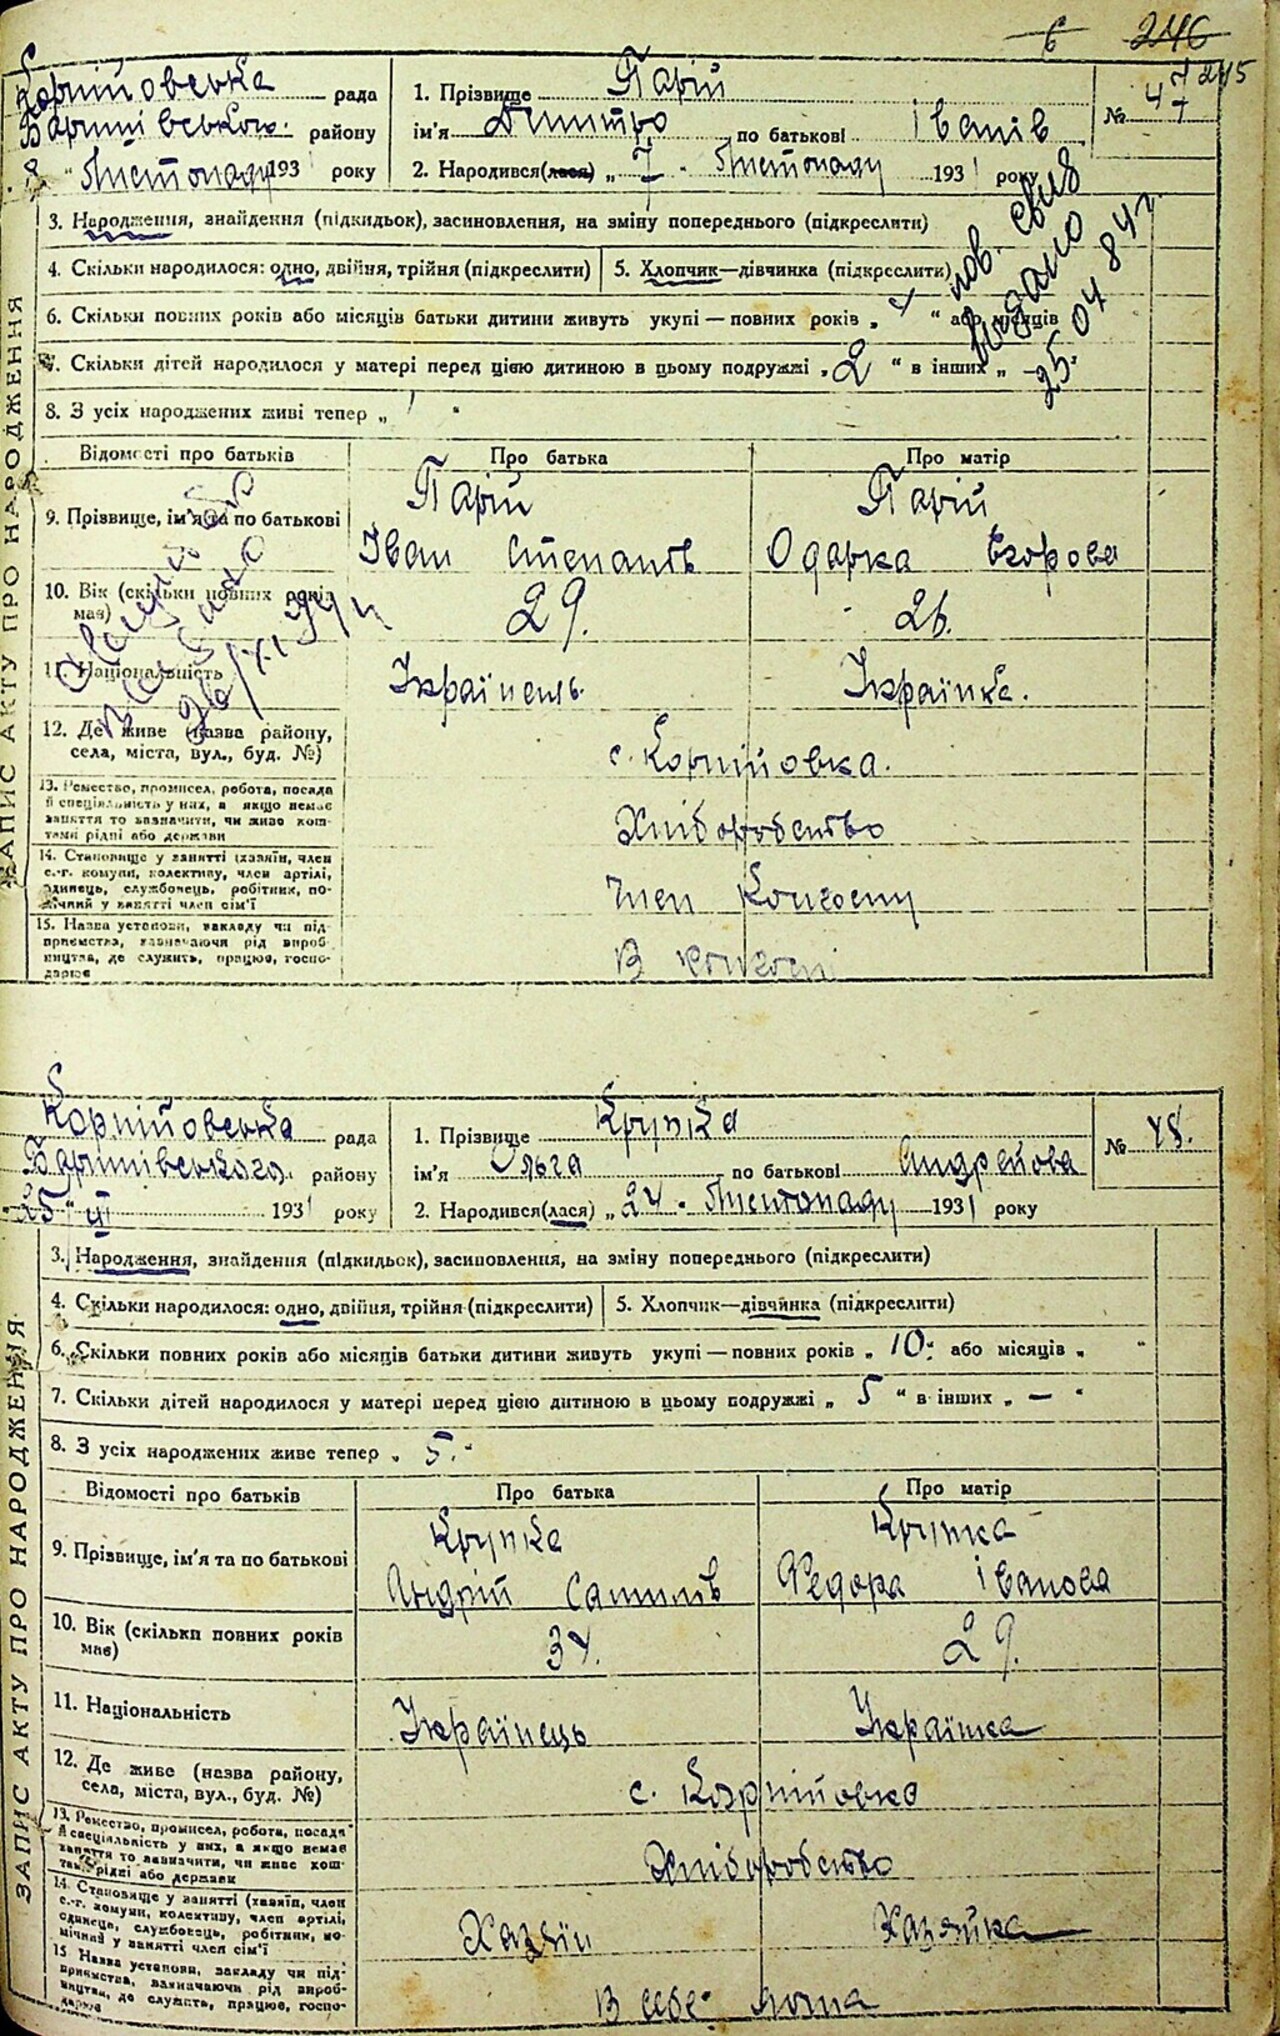 6 246
245
Корнійовська рада
1. Прізвище Парій
№ 47
Баришівського району
ім'я Дмитро по батькові Іванів
8 " Листопаду 1931 року
2. Народився(лася) „ 7 " Листопаду 1931 року
3. Народження, знайдення (підкидьок), засиновлення, на зміну попереднього (підкреслити)
4. Скільки народилося: одно, двійня, трійня (підкреслити)
5. Хлопчик—дівчинка (підкреслити)
6. Скільки повних років або місяців батьки дитини живуть укупі — повних років „ " або місяців
7. Скільки дітей народилося у матері перед цією дитиною в цьому подружжі „ 2 " в інших „ –
8. З усіх народжених живі тепер „
пов. свид
видано
25.04 84 г.
ЗАПИС АКТУ ПРО НАРОДЖЕННЯ
Відомості про батьків
Про батька
Про матір
9. Прізвище, ім'я та по батькові
Парій
Іван Степанів
Парій
Одарка Єгорова
10. Вік (скільки повних років має)
29.
26.
11. Національність
Українець.
Українка.
12. Де живе (назва району,
села, міста, вул., буд. №)
с. Корнійовка.
13. Ремество, промисел, робота, посада
й спеціяльність у них, а якщо немає
заняття то зазначити, чи живе кош-
тами рідні або держави
Хліборобство
14. Становище у занятті (хазяїн, член
с.-г. комуни, колективу, член артілі,
одинець, службовець, робітник, по-
мічний у занятті член сім'ї
Член колгоспу
15. Назва установи, закладу чи під-
приємства, зазначаючи рід вироб-
ництва, де служить, працює, госпо-
дарює
В колгоспі
Корнійовська рада
1. Прізвище Крупка
№ 48.
Баришівського району
ім'я Ольга по батькові Андрейова
25 " XI 1931 року
2. Народився(лася) „ 24 " Листопаду 1931 року
3. Народження, знайдення (підкидьок), засиновлення, на зміну попереднього (підкреслити)
4. Скільки народилося: одно, двійня, трійня (підкреслити)
5. Хлопчик—дівчинка (підкреслити)
6. Скільки повних років або місяців батьки дитини живуть укупі — повних років „ 10 " або місяців „ "
7. Скільки дітей народилося у матері перед цією дитиною в цьому подружжі „ 5 " в інших „ – "
8. З усіх народжених живе тепер „ 5. "
ЗАПИС АКТУ ПРО НАРОДЖЕННЯ
Відомості про батьків
Про батька
Про матір
9. Прізвище, ім'я та по батькові
Крупка
Андрій Самилів
Крупка
Федора Іванова
10. Вік (скільки повних років
має)
34.
29.
11. Національність
Українець
Українка
12. Де живе (назва району,
села, міста, вул., буд. №)
с. Корнійовка
13. Ремество, промисел, робота, посада
й спеціяльність у них, а якщо немає
заняття то зазначити, чи живе кош-
тами рідні або держави
Хліборобство
14. Становище у занятті (хазяїн, член
с.-г. комуни, колективу, член артілі,
одинець, службовець, робітник, по-
мічний у занятті член сім'ї
Хазяїн
Хазяйка
15 Назва установи, закладу чи під-
приємства, зазначаючи рід вироб-
ництва, де служить, працює, госпо-
дарює
В себе дома